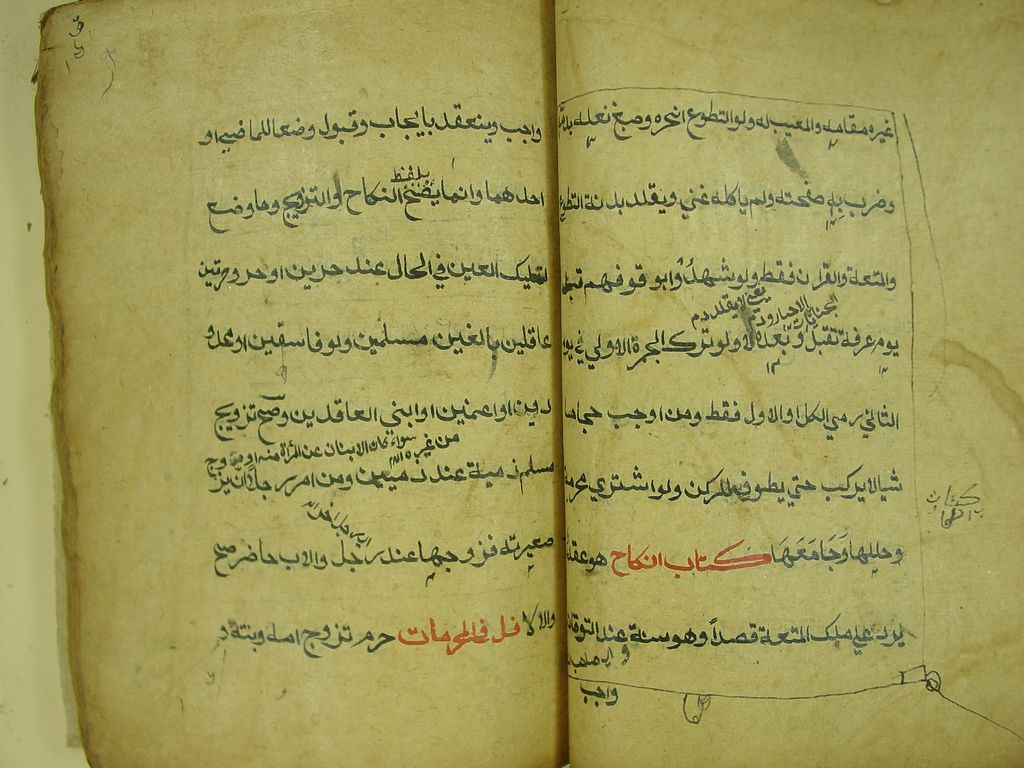 غيره مقامه والمعيب له ولو التطوع انحره وصبغ نعله بدمه
وضرب به صفحته ولم ياكله غني ويقلد بدنة التطوع
والمتعة والقران فقط ولو شهدوا بوقوفهم قبل
يوم عرفة تقبل وبعده لا ولو ترك الجمرة الاولي في يوم
الثاني رمي الكل او الاول فقط ومن اوجب حجا ما
شيا لا يركب حتي يطوف للركن ولو اشتري محرمة
وحللها وجامعها كتاب النكاح هو عقد
يرد علي ملك المتعة قصداً وهو سنة عند التوقان
واجب
كتاب
النكاح
واجب وينعقد بايجاب وقبول وضعا للماضي او
احدهما وانما يصح بلفظ النكاح والتزويج وما وضع
لتمليك العين في الحال عند حرين او حر وحرتين
عاقلين بالغين مسلمين ولو فاسقين او محدو
دين او اعميين او ابني العاقدين وصح تزويج
سواء كان الابنان عن المرأة منه او من غيره
مسلم ذمية عند ذميين ومن امر رجلا ان يزوج
صغيرته فزوجها عند رجل والاب حاضر صح
والا لا فصل في المحرمات حرم تزوج امه وبنته و